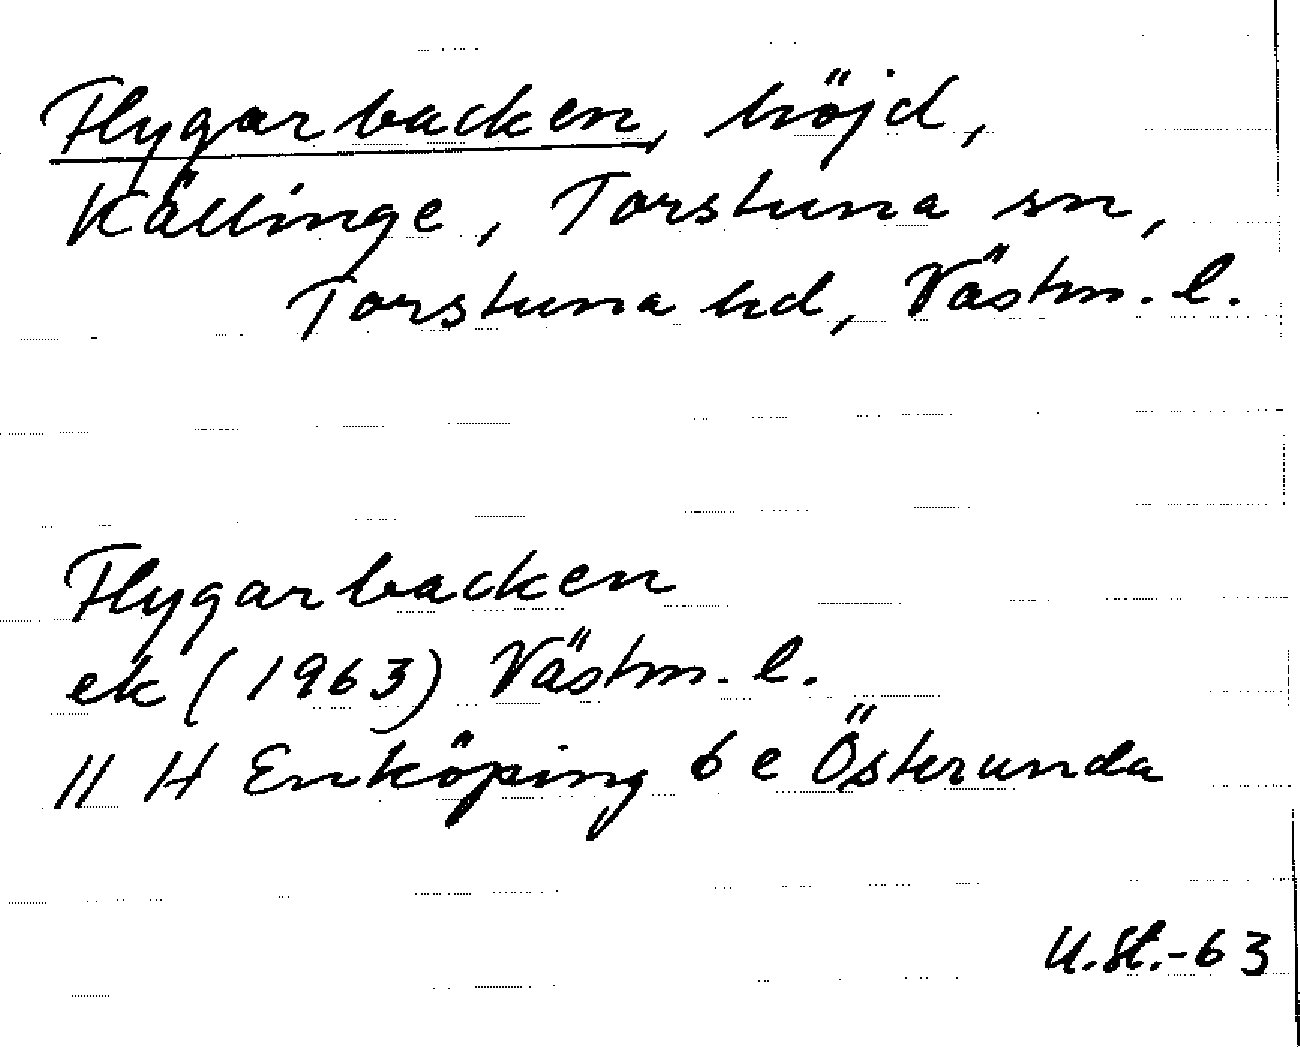 Flygarbacken, höjd,
Källinge, Torstuna sn,
Torstuna hd, Västm. l.
Flygarbacken
ek (1963) Västm. l.
11 H Enköping 6 e Österunda
U.St.-63